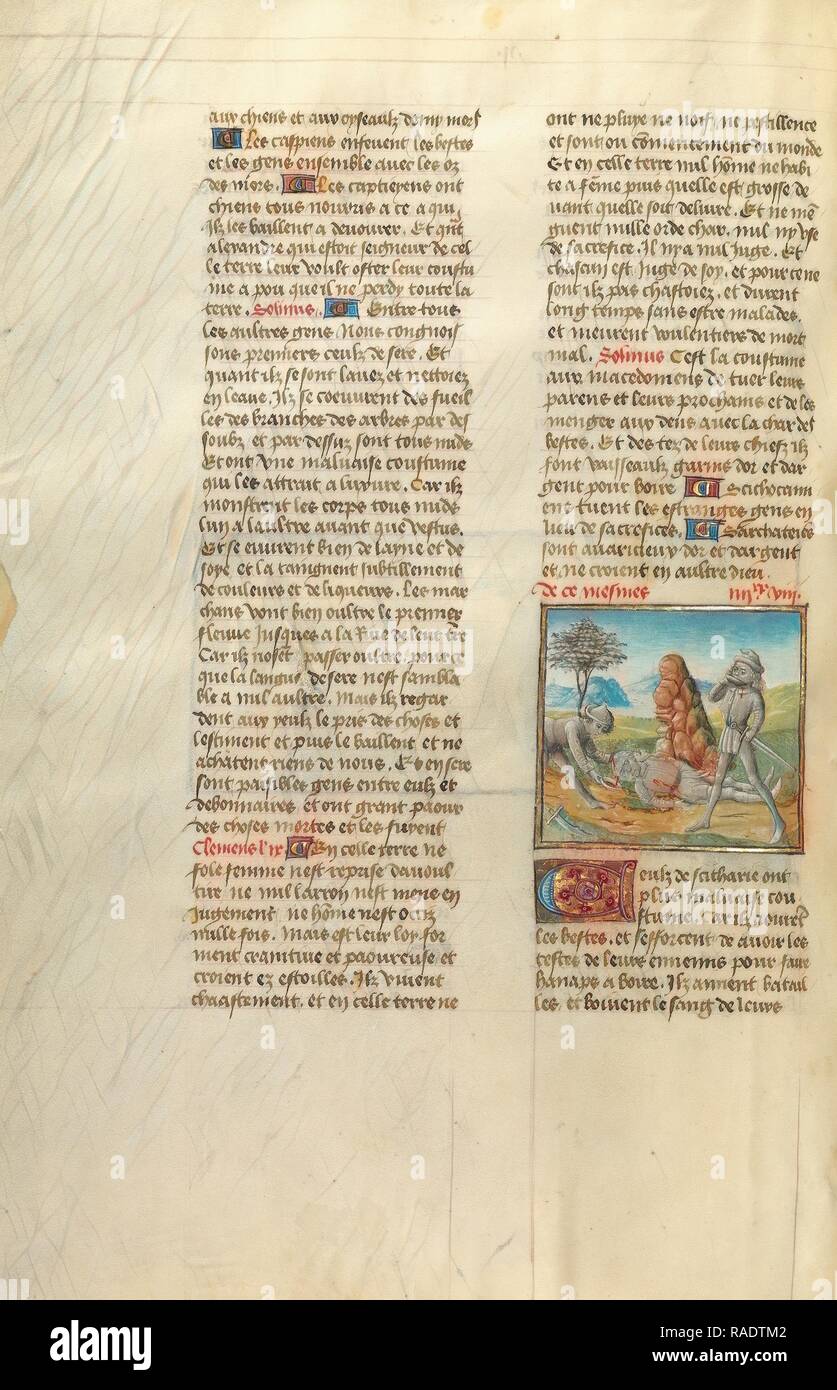 aux chiens et aux oyseaulx demy mors
Les caspiens ensevent les bestes
et les gens ensemble avec les oz
des mors. Les captieyens ont
chiens tous nourris a ce a qui
ilz les baillent a devourer. Et qñt
alexandre qui estoit seigneur de cel
le terre leur voult oster leur coustu
me a pou que il ne perdy toute la
terre. Solinus. Entre tous
les aultres gens Nous congnois
sons premiers ceulz de sere. Et
quant ilz se sont lavez et nettoiez
en leaue. Ilz se coeuvrent des fueil
les des branches des arbres par des
soubz et par dessuz sont tous nudz
Et ont vne maluaise coustume
qui les attrait a luxure. Car ilz
monstrent les corps tous nudz
lun a laultre avant que vestus.
Et se euvrent bien de layne et de
soye et la taingnent subtillement
de couleurs et de liqueurs. Les mar
chans vont bien oultre le premier
fleuve Jusques a la Rive de leur tre
Car ilz nosent passer oultre pource
que la langue de sere nest sambla
ble a nul aultre. Mais ilz regar
dent aux yeulz le pris des choses et
lestiment et puis le baillent et ne
achatent riens de nous. Et en sere
sont paisibles gens entre eulz et
debonnaires et ont grant paour
des choses mortes et les fuyent
Clemens l ix En celle terre ne
fole femme nest reprise davoul
tire ne nul larron nest mene en
Jugement ne hõme nest occiz
nulle fois. Mais est leur loy for
ment craintive et paoureuse et
croient ez estoilles. Ilz vivent
chastement. et en celle terre ne
ont ne pluye ne noif ne pestillence
et sont ou cõmencement du monde
Et en celle terre nul hõme ne habi
te a fẽme puis quelle est grosse de
vant quelle soit delivre. Et ne mẽ
guent nulle orde char. nul ny vse
de sacrefice. Il ny a nul Juge. Et
chascun est Juge de soy. et pour ce ne
sont ilz pas chastoiez. et durent
long temps sans estre malades.
et meurent voulentiers de mort
mal. Solinus Cest la coustume
aux macedoniens de tuer leurs
parens et leurs prochains et de les
menger aux dens avec la char des
bestes. Et des tez de leurs chiefz ilz
font vaisseaulz garnis dor et dar
gent pour boire Scithocann
ene tuent les estranges gens en
lieu de sacrefices. Sarchateres
sont avaricieux dor et dargent
et ne croient en aultre dieu.
de ce mesmes iiii xx viii.
Ceulz de scitharie ont
plus maluaise cou
stume Car ilz
les bestes. et sefforcent de avoir les
testes de leurs ennemis pour faire
hanaps a boire. Ilz aiment batail
les et boivent le sang de leurs
alamy
Image ID: RADTM2
www.alamy.com